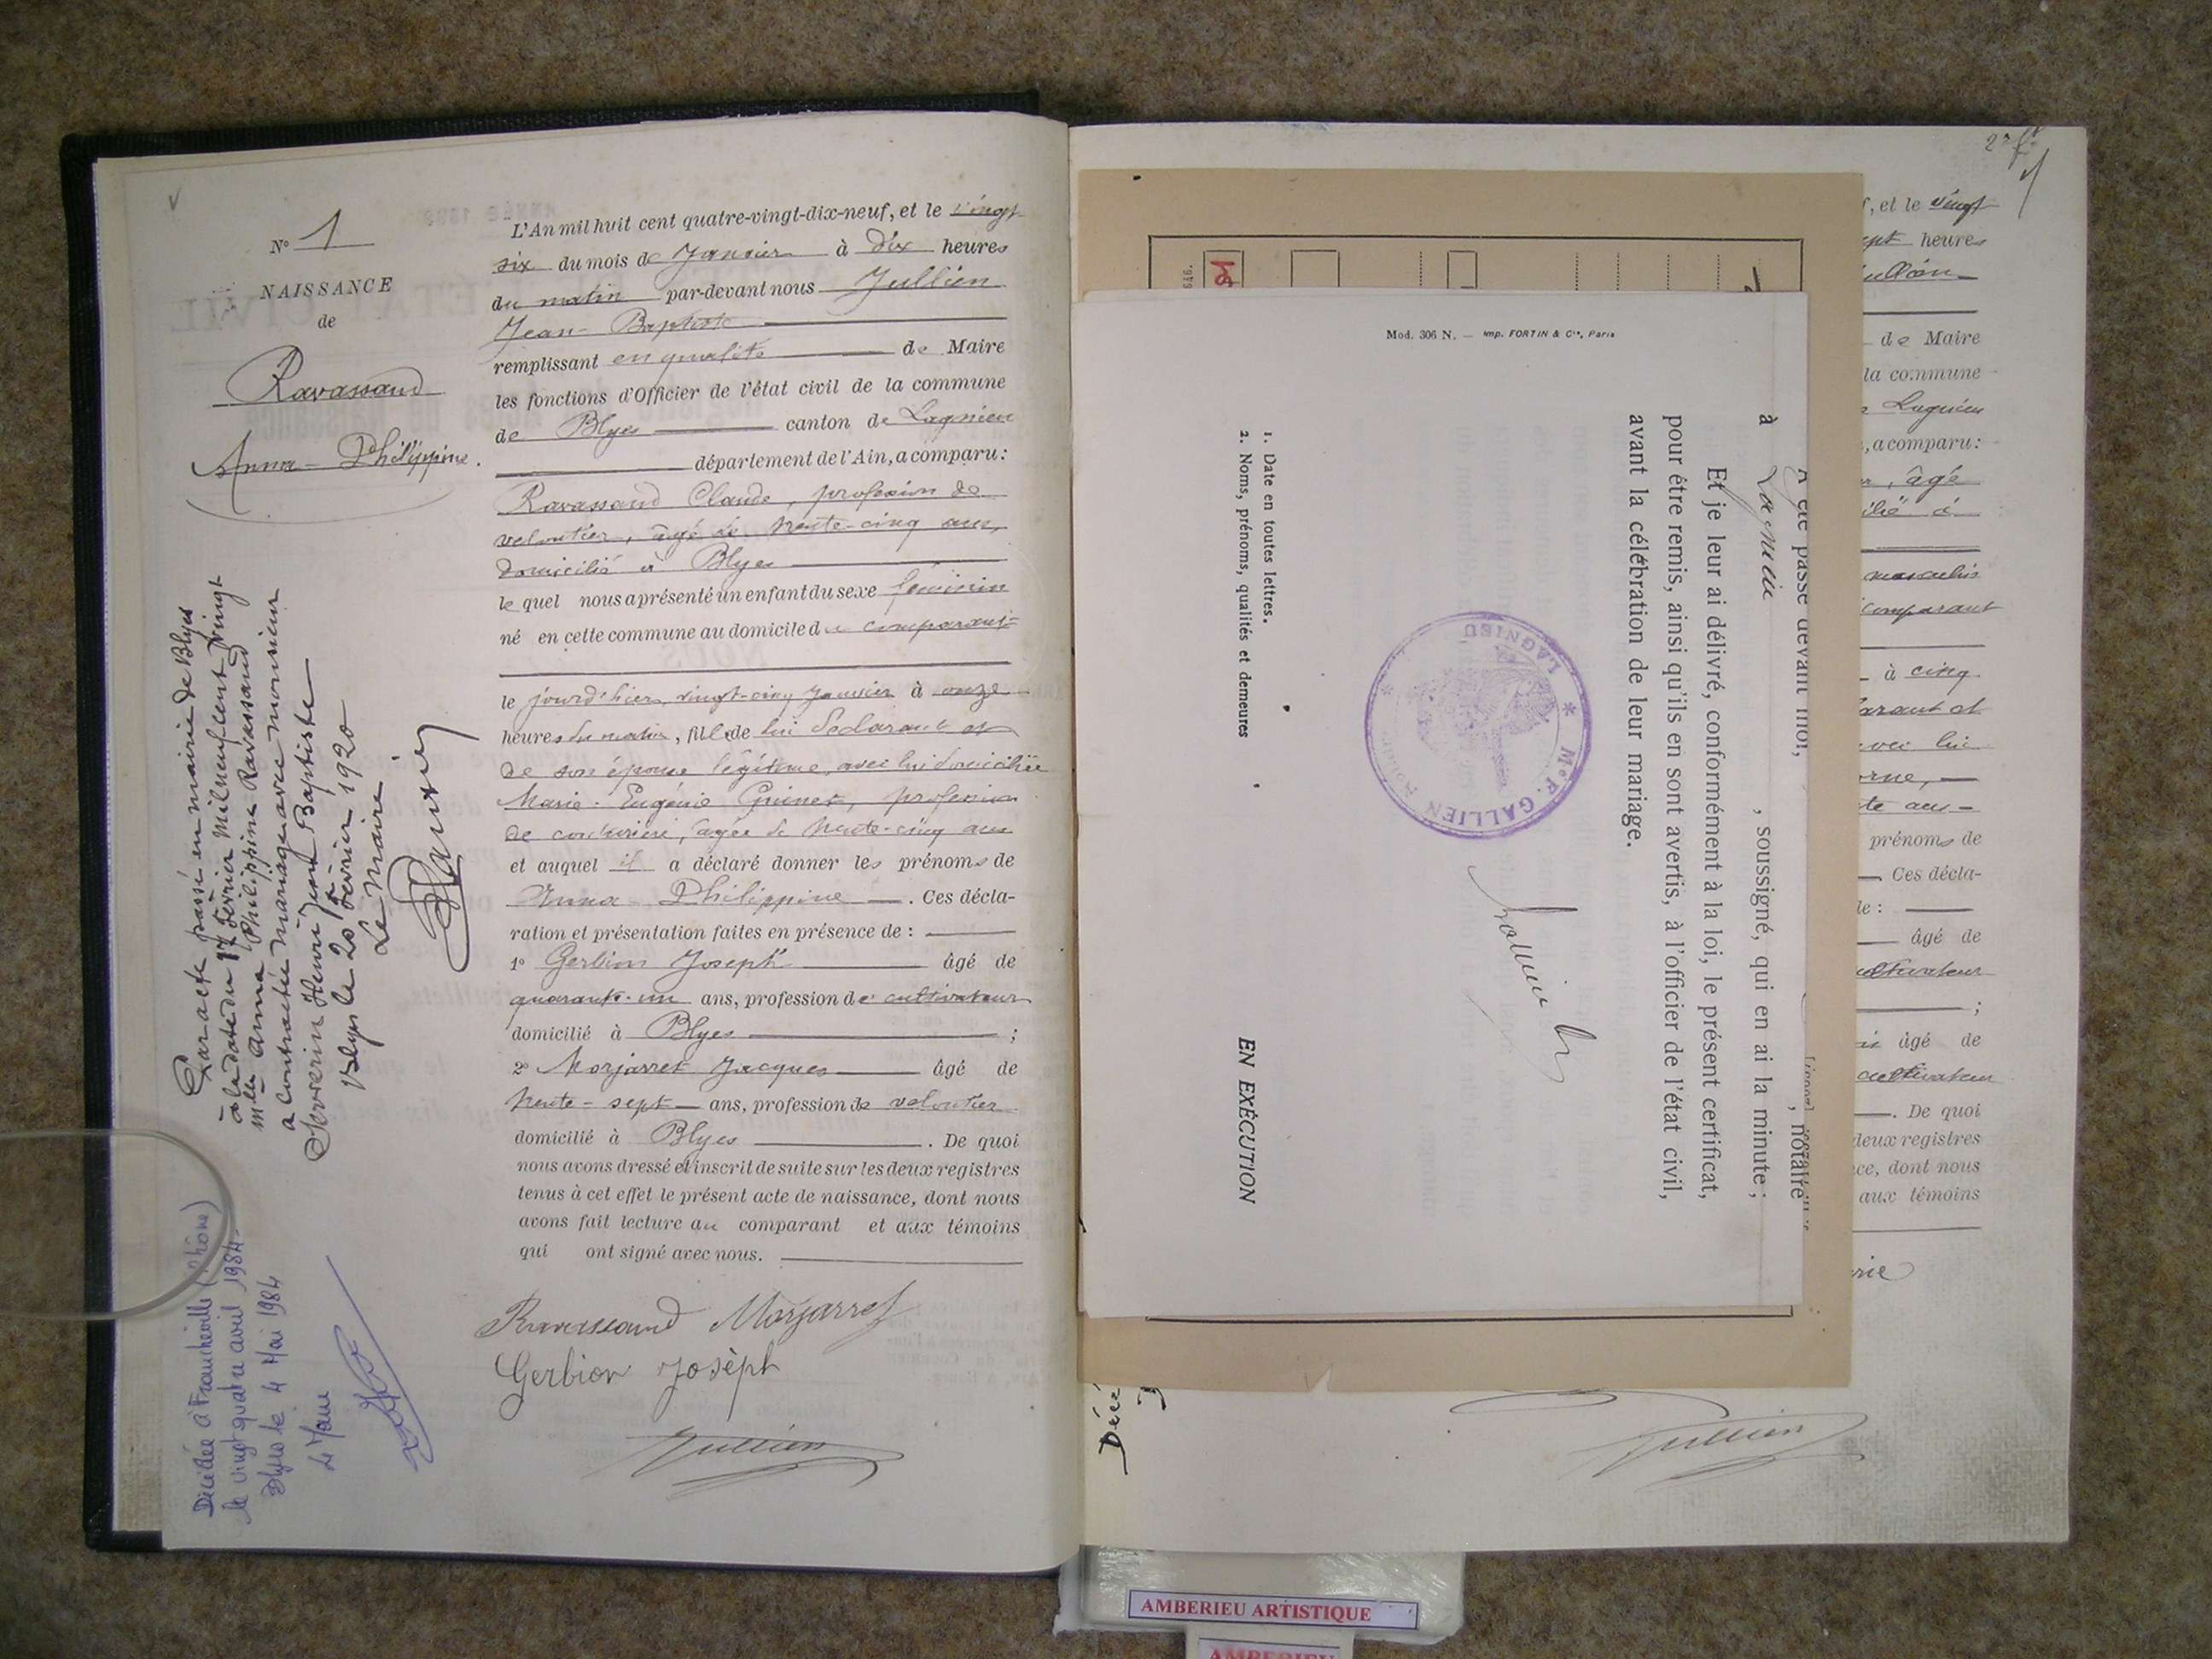 N° 1
NAISSANCE
de
Ravassaud
Anna-Philippine.
L'An mil huit cent quatre-vingt-dix-neuf, et le vingt
six du mois de Janvier à dix heures
du matin par-devant nous Jullien
Jean-Baptiste
remplissant en qualité de Maire
les fonctions d'Officier de l'état civil de la commune
de Blyes canton de Lagnieu
département de l'Ain, a comparu :
Ravassaud Claude, profession de
veloutier, âgé de trente-cinq ans,
domicilié à Blyes
lequel nous a présenté un enfant du sexe féminin
né en cette commune au domicile du comparant
le jourd'hier, vingt-cinq Janvier à onze
heures du matin, fille de lui déclarant et
de son épouse légitime, avec lui domiciliée
Marie-Eugénie, profession
de couturière, âgée de trente-cinq ans
et auquel il a déclaré donner les prénoms de
Anna Philippine. Ces décla-
ration et présentation faites en présence de :
1° Gerbion Joseph âgé de
quarante-un ans, profession de cultivateur
domicilié à Blyes ;
2° Morjarret Jacques âgé de
trente-sept ans, profession de veloutier
domicilié à Blyes. De quoi
nous avons dressé et inscrit de suite sur les deux registres
tenus à cet effet le présent acte de naissance, dont nous
avons fait lecture au comparant et aux témoins
qui ont signé avec nous.
Ravassaud Morjarret
Gerbion Joseph
Jullien
Par acte passé en mairie de Blyes
à la date du 17 février Mil neuf cent vingt
Melle Anna Philippine Ravassaud
a contracté mariage avec monsieur
Severin Henri Jean Baptiste
Blyes le 20 février 1920
Le Maire
Décédée à Francheville (Rhône)
le vingt quatre avril 1984-
Blyes le 4 Mai 1984
Le Maire
Mod. 306 N. — Imp. FORTIN & Cie, Paris
A été passé devant moi, , notaire
à Lagnieu , soussigné, qui en ai la minute ;
Et je leur ai délivré, conformément à la loi, le présent certificat,
pour être remis, ainsi qu'ils en sont avertis, à l'officier de l'état civil,
avant la célébration de leur mariage.
Me P. GALLIEN
LAGNIEU
1. Date en toutes lettres.
2. Noms, prénoms, qualités et demeures
EN EXÉCUTION
, et le vingt
heures
de Maire
la commune
Lagnieu
, a comparu :
, âgé
à
masculin
comparant
à cinq
avec lui
prénoms de
Ces décla-
de :
âgé de
cultivateur
;
âgé de
cultivateur
. De quoi
deux registres
dont nous
aux témoins
Jullien
AMBERIEU ARTISTIQUE
AMBERIEU